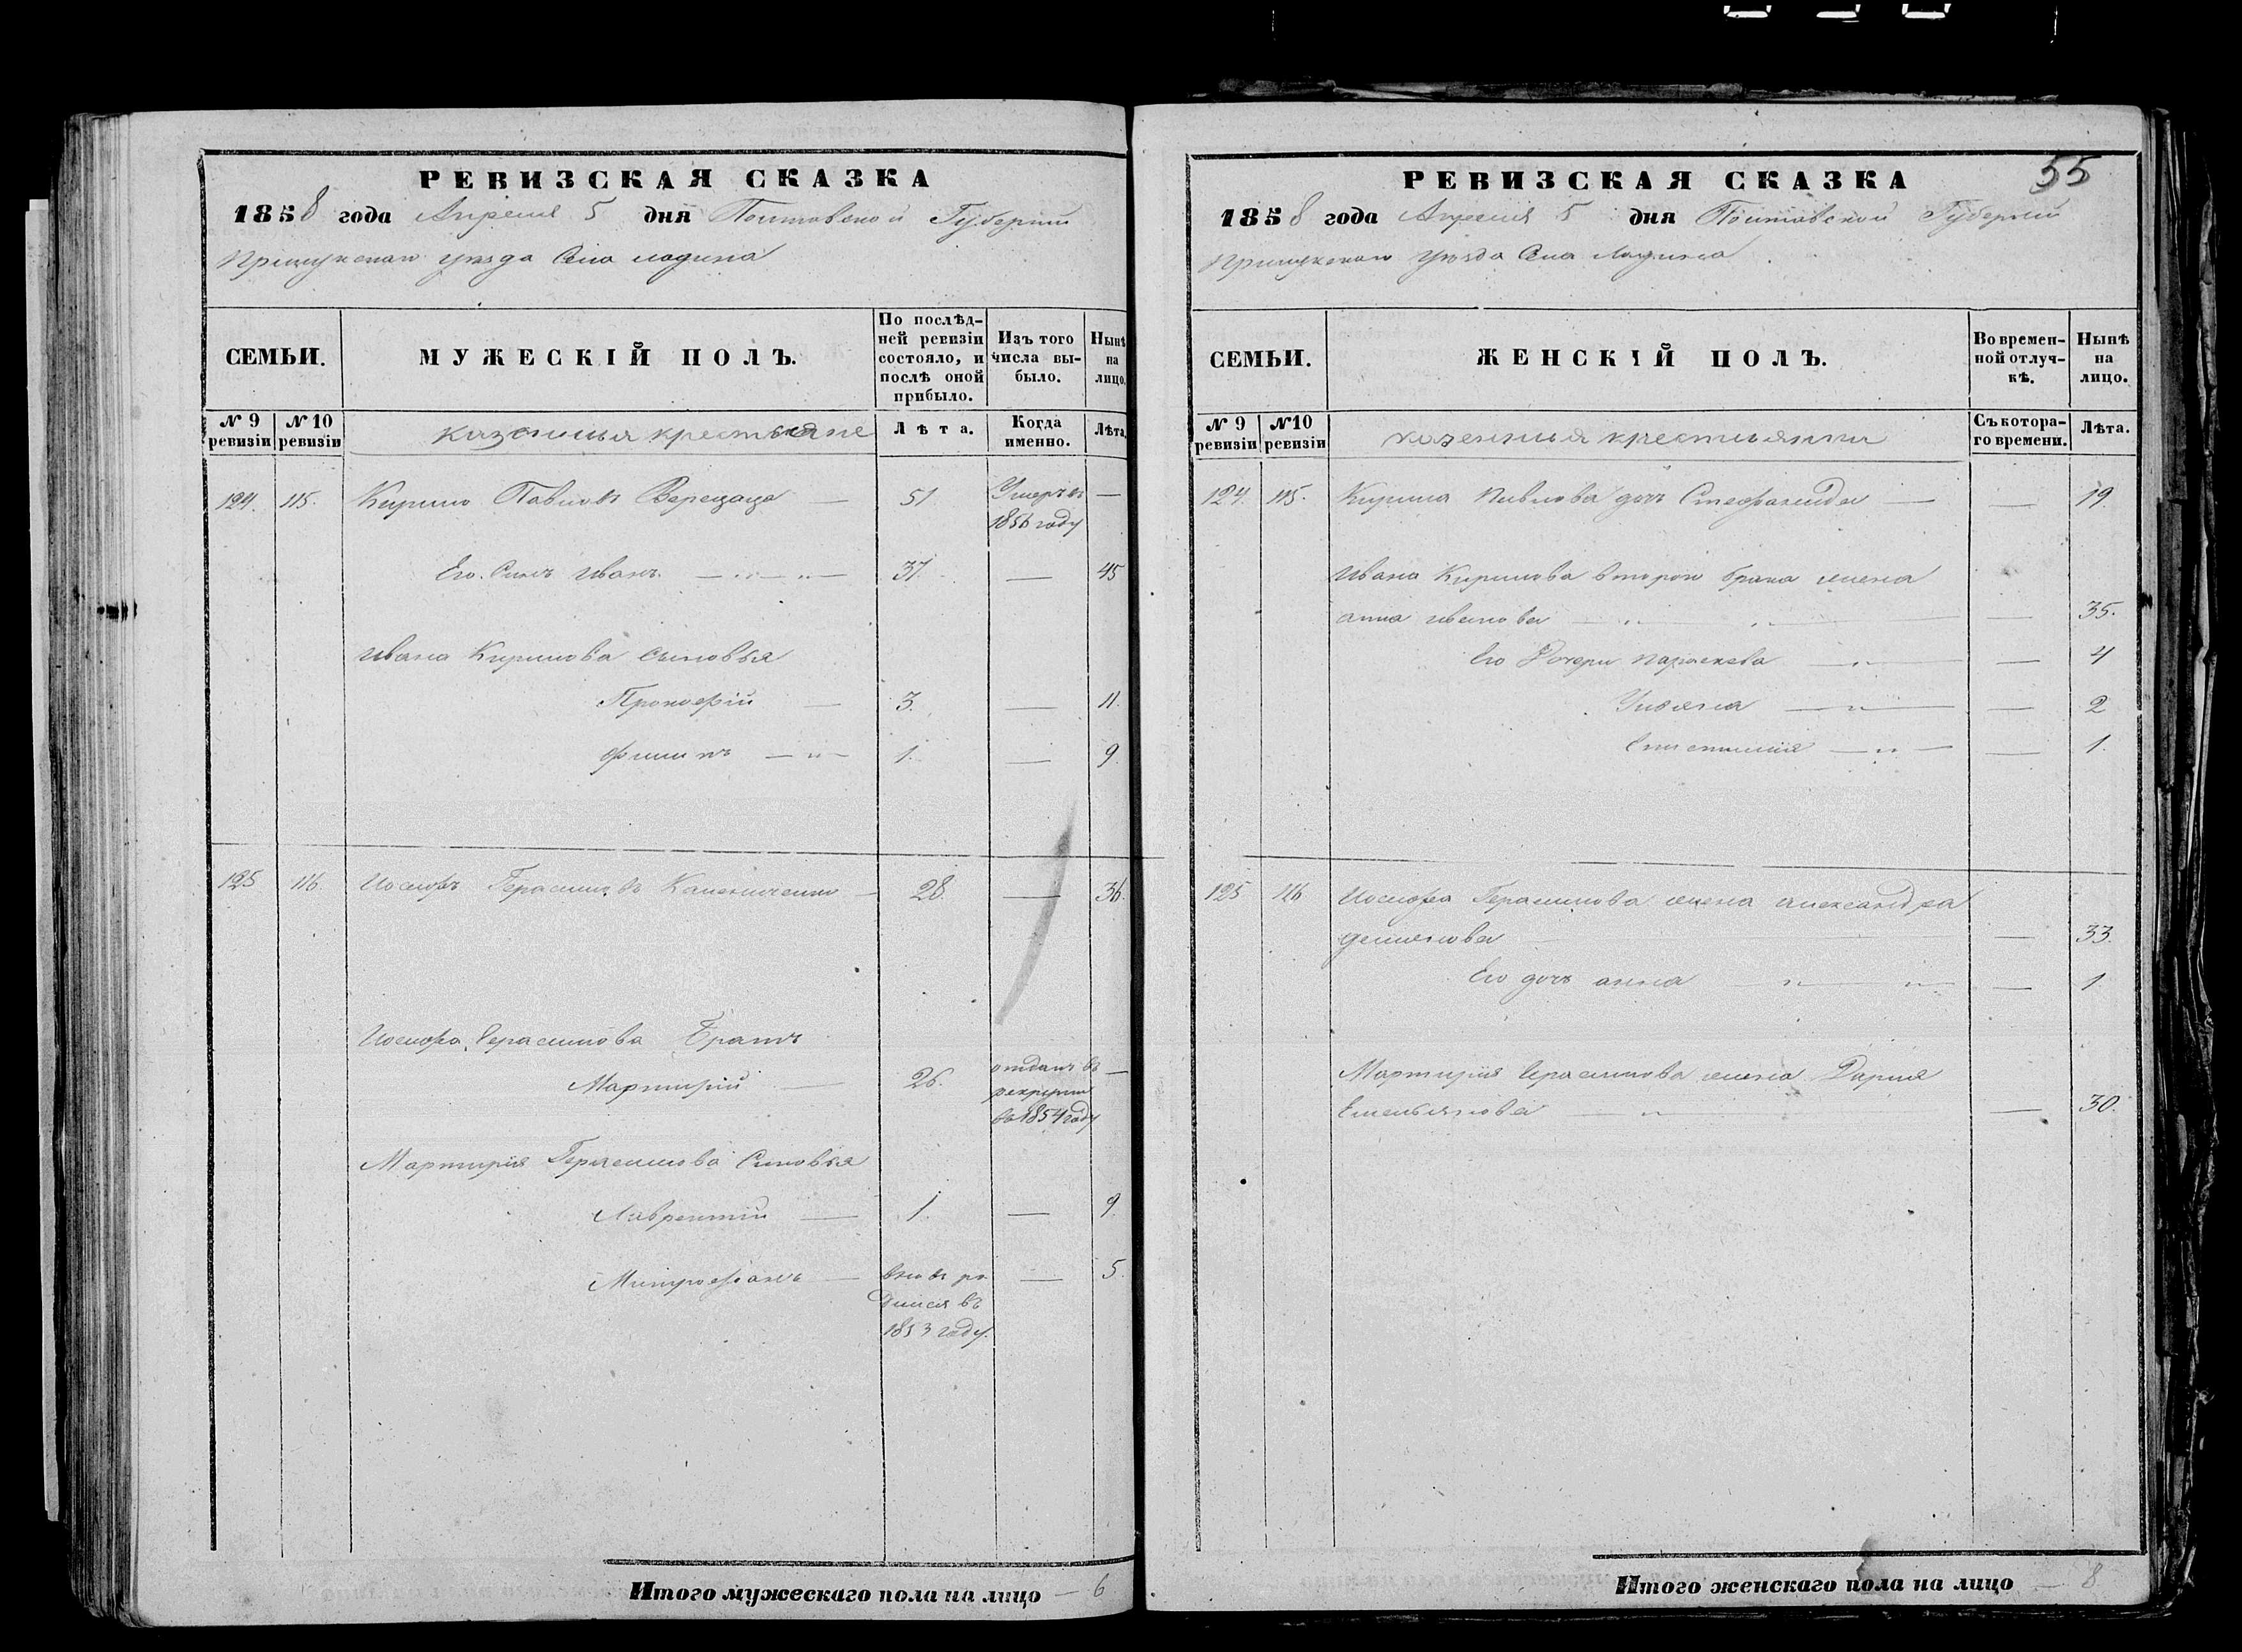 РЕВИЗСКАЯ СКАЗКА
1858 года Апреля 5 дня Полтавской Губернии
Прилукскаго уезда Села Ладина
СЕМЬИ.
МУЖЕСКІЙ ПОЛЪ.
По послѣд-
ней ревизіи
состояло, и
послѣ оной
прибыло.
Изъ того
числа вы-
было.
Нынѣ
на
лицо.
№ 9
ревизіи
№ 10
ревизіи
казенныя крестьяне
Лѣта.
Когда
именно.
Лѣта.
124. 115. Кирило Павловъ Верещага — 51 Умеръ въ —
1856 году
Его Синъ иванъ 37. — 45
ивана Кирилова сыновья
Прокофій — 3. — 11.
филипъ 1. — 9.
125 116. Иосифъ Герасимовъ — 28. — 36.
Иосифа Герасимова Братъ
Мартирій — 26. отданъ въ —
рекруты
въ 1854 году
Мартирія Герасимова Синовья
Лаврентій — 1. — 9.
Митрофанъ — вновь ро — 5.
дился въ
1853 году.
Итого мужескаго пола на лицо — 6
55
РЕВИЗСКАЯ СКАЗКА
1858 года Апреля 5 дня Полтавской Губернии
Прилукскаго уезда Села Ладина
СЕМЬИ.
ЖЕНСКІЙ ПОЛЪ.
Во времен-
ной отлуч-
кѣ.
Нынѣ
на
лицо.
№ 9
ревизіи
№ 10
ревизіи
казенныя крестьянки
Съ котора-
го времени.
Лѣта.
124. 115. Кирила Павлова дочь Стефанида — — 19.
ивана Кирилова второго брака жена
анна иванова — 35.
Его Дочери параскева — 4
Улияна — 2
— 1.
125 116 Иосифа Герасимова жена александра
демянова — 33.
Его дочь анна — 1
Мартирія Герасимова жена Дария
Емельянова — 30.
Итого женскаго пола на лицо — 8